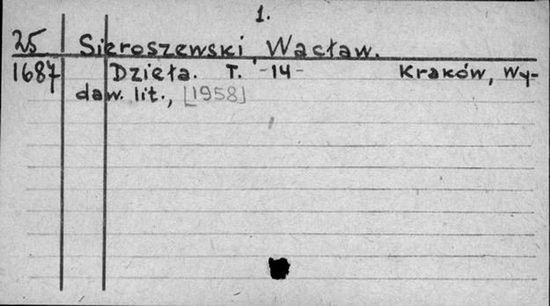 1.
25 Sieroszewski Wacław.
1687 Dzieła. T. -14- Kraków, Wy-
daw. lit., [1958]